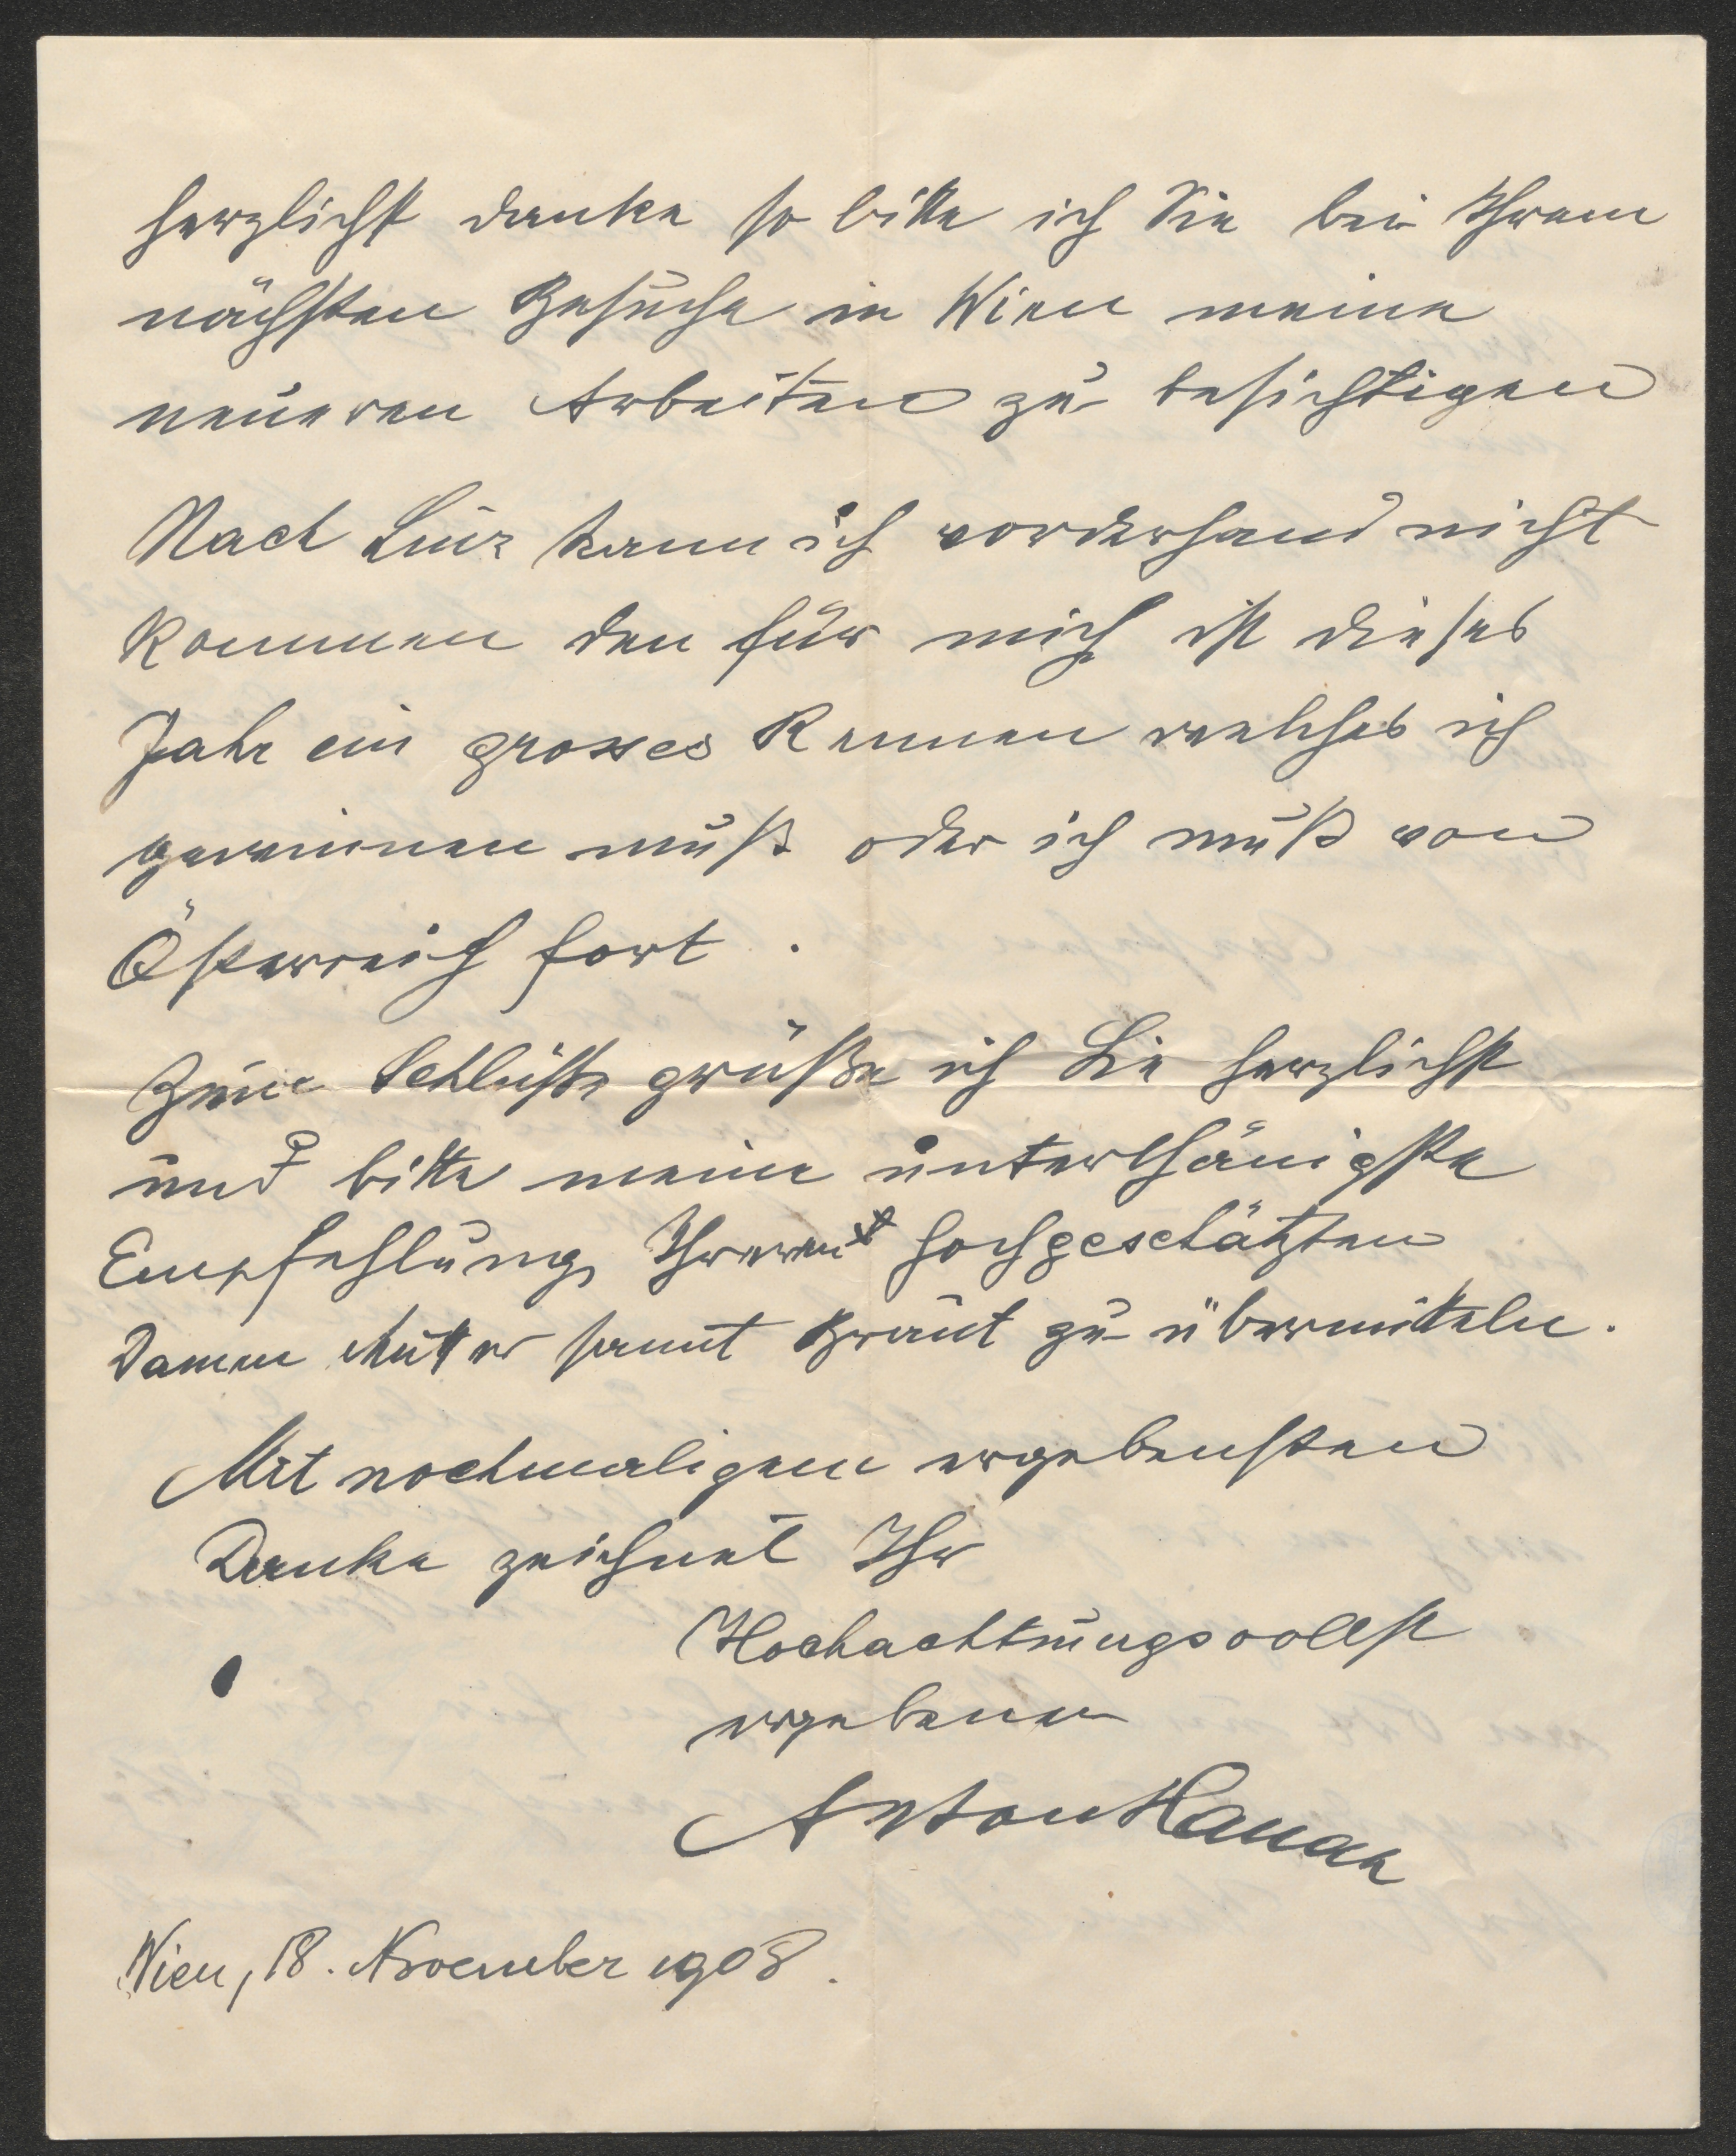 herzlichst danke so bitte ich Sie bei Ihrem
nächsten Besuche in Wien meine
neueren Arbeiten zu besichtigen
Nach Linz kann ich vorderhand nicht
kommen den für mich ist dieses
Jahr ein grosses Rennen welches ich
gewinnen muß oder ich muß von
Österreich fort.
Zum Schluße grüße ich Sie herzlichst
und bitte meine unterthänigste
Empfehlung Ihren hochgeschätzten
Damen Mutter samt Braut zu übermitteln.
Mit nochmaligem ergebensten
Danke zeichnet Ihr
Hochachtungsvollst
ergebener
Anton Hanak
Wien, 18. November 1908.